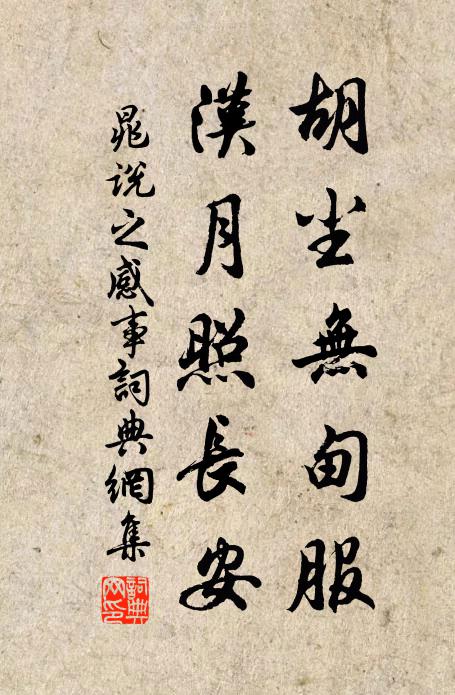 胡尘無甸服
漢月照長安
晁说之感事詞典網集
詞典
网印